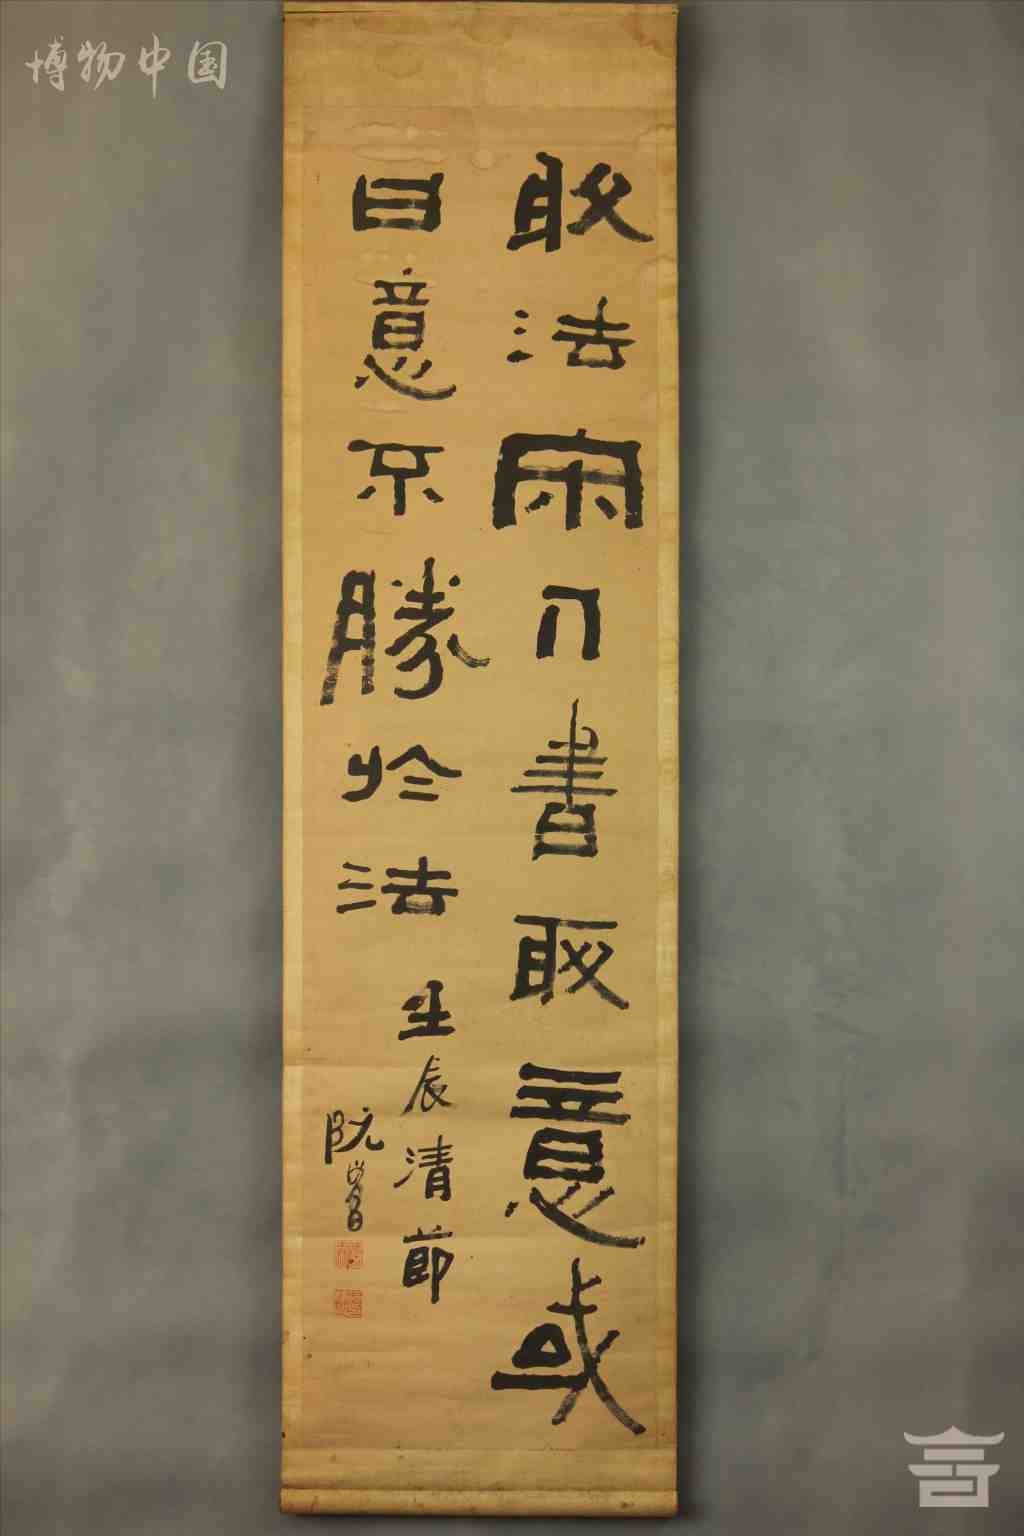 博物中国
取法宋人書取意或
曰意不勝於法
壬辰清節
阮